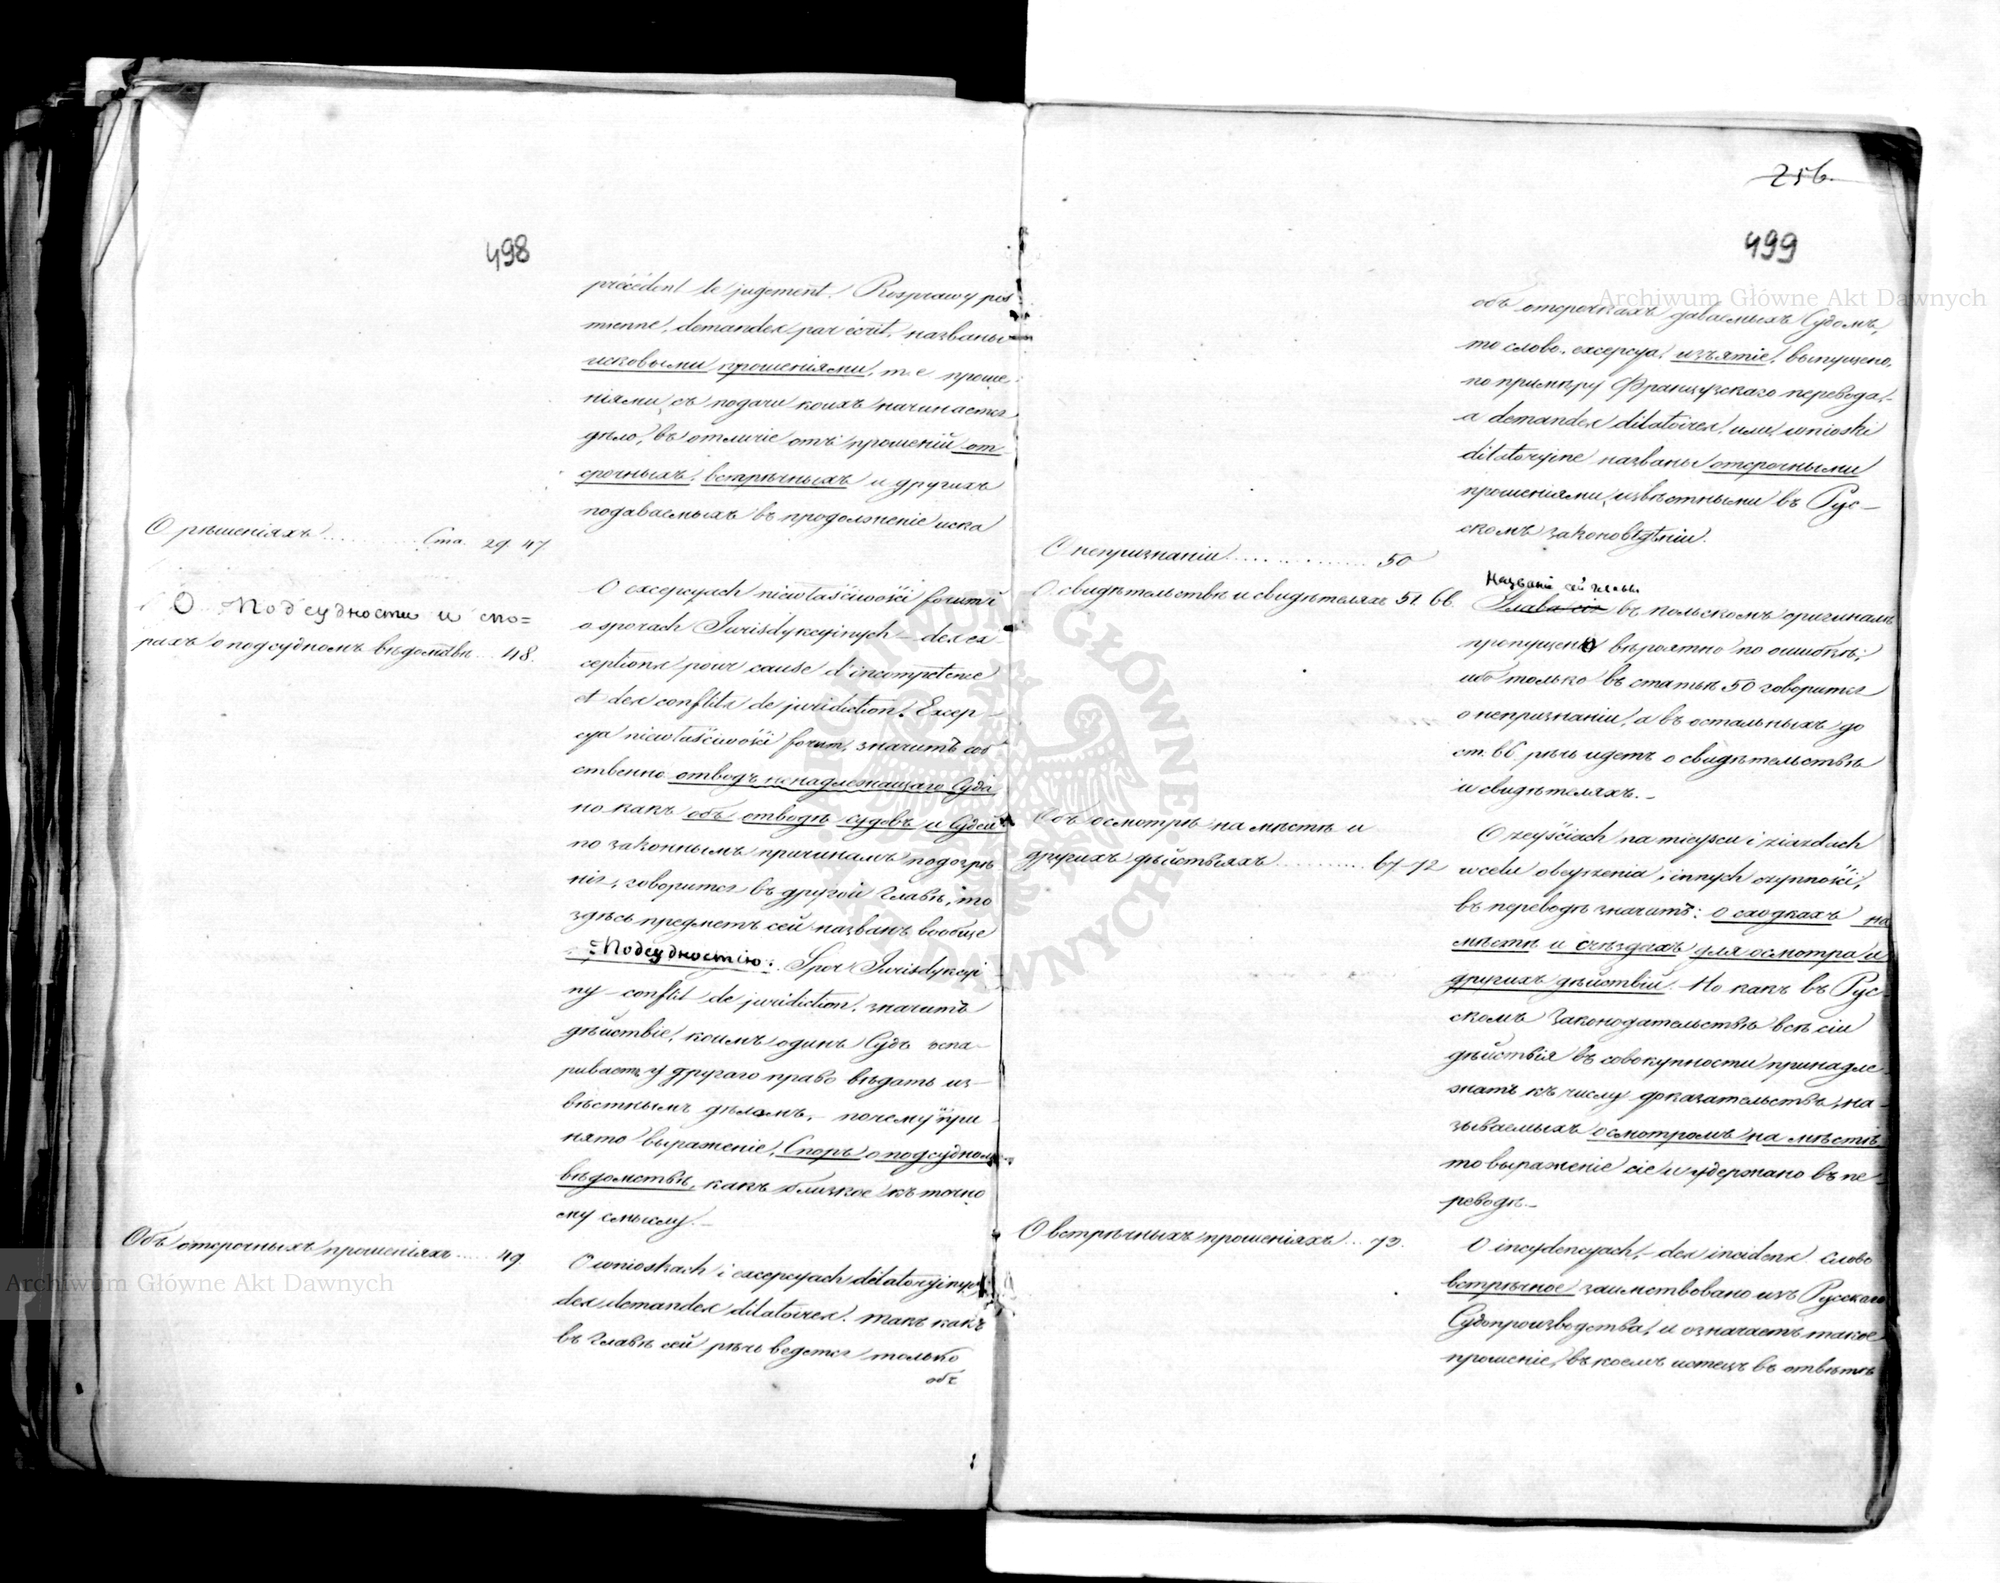 498
précédent le jugement. Rosprawy piś
mienne, demandes par écrit, названы
исковыми прошеніями, т. е. проше-
ніями, съ подачи коихъ начинается
дѣло, въ отличіе отъ прошеній от-
срочныхъ, встрѣчныхъ и другихъ
подаваемыхъ въ продолженіе иска
О рѣшеніяхъ .......... Ста. 29. 47
О Подсудности и спо=
рахъ о подсудномъ вѣдомствѣ... 48.
O excepcyach niewłaściwości forum i
o sporach Jurisdykcyinych – des ex-
ceptions pour cause d'incompetence
et des conflits de juridiction. Excep-
cya niewłaściwości forum, значитъ соб
ственно отводъ ненадлежащаго Суда,
но какъ объ отводѣ судовъ и Судей
по законнымъ причинамъ подозрѣ
нія, говорится въ другой Главѣ, то
здѣсь предметъ сей названъ вообще
=Подсудностію: Spor Jurisdykcyi
ny – conflit de juridiction, значитъ
дѣйствіе, коимъ одинъ Судъ оспа-
риваетъ у другаго право вѣдать из-
вѣстнымъ дѣломъ, – почему при-
нято выраженіе, Споръ о подсудномъ
вѣдомствѣ, какъ близкое къ точно
му смыслу. –
Объ отсрочныхъ прошеніяхъ ..... 49.
O wnioskach i excepcyach dilatoryjnych
des demandes dilatoires. такъ какъ
въ Главѣ сей рѣчь ведется только
объ
256.
499
объ отсрочкахъ даваемыхъ Судомъ,
то слово, excepcya, изъятіе, выпущено,
по примѣру Французскаго перевода, –
а demandes dilatoires, или wnioski
dilatoryjne названы отсрочными
прошеніями, извѣстными въ Рус-
скомъ законовѣденіи.
О непризнаніи .............. 50
О свидѣтельствѣ и свидѣтеляхъ 51. 66.
Названіе сей главы
Глава сія въ польскомъ оригиналѣ
пропущено вѣроятно по ошибкѣ;
ибо только въ статьѣ 50 говорится
о непризнаніи, а въ остальныхъ до
ст. 66. рѣчь идетъ о свидѣтельствѣ
и свидѣтеляхъ. –
Объ осмотрѣ на мѣстѣ и
другихъ дѣйствіяхъ ........... 67-72
O zeyściach na mieyscu i ziazdach
w celu obeyrzenia, i innych czynności,
въ переводѣ значитъ: о сходкахъ на
мѣстѣ и съѣздахъ для осмотра и
другихъ дѣйствій. Но какъ въ Рус-
скомъ Законодательствѣ всѣ сіи
дѣйствія въ совокупности принадле-
жатъ къ числу доказательствъ, на-
зываемыхъ осмотромъ на мѣстѣ
то выраженіе сіе и удержано въ пе-
реводѣ. –
О встрѣчныхъ прошеніяхъ ... 73.
O incydencyach, – des incidens. слово
встрѣчное заимствовано изъ Русскаго
Судопроизводства, и означаетъ такое
прошеніе, въ коемъ истецъ въ отвѣтѣ
Archiwum Główne Akt Dawnych
Archiwum Główne Akt Dawnych
ARCHIWUM GŁÓWNE AKT DAWNYCH